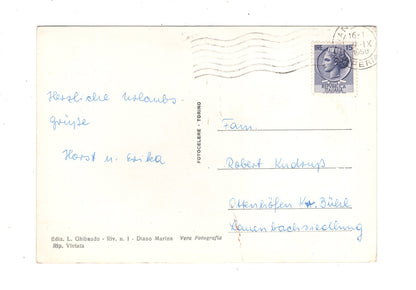 Herzliche Urlaubs-
grüße
Horst u. Erika
Fam.
Robert Kudruß
Ottenhöfen Kr. Bühl
Lauenbachsiedlung
FOTOCELERE - TORINO
Ediz. L. Ghibaudo - Riv. n. 1 - Diano Marina Vera Fotografia
Rip. Vietata
16-1
IX